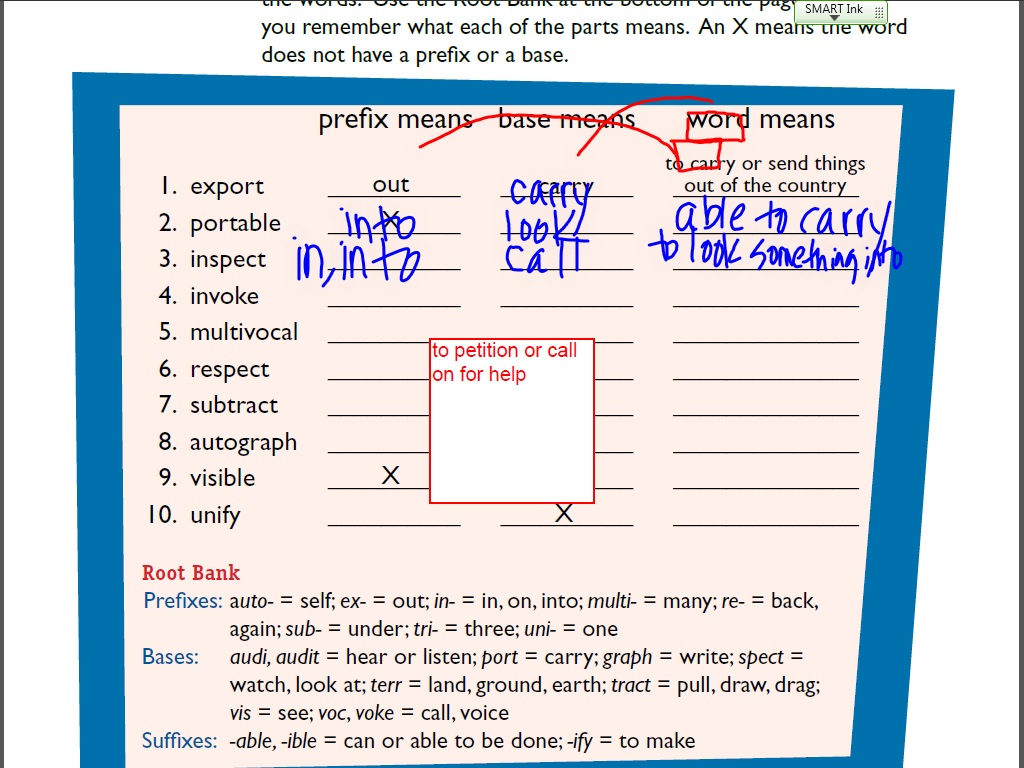 the words. Use the Root Bank at the bottom of the page
SMART Ink
you remember what each of the parts means. An X means the word
does not have a prefix or a base.
prefix means base means word means
to carry or send things
1. export out carry carry out of the country
2. portable X into look/ able to carry
3. inspect in, into call to look something into
4. invoke
5. multivocal
to petition or call
on for help
6. respect
7. subtract
8. autograph
9. visible X
10. unify X
Root Bank
Prefixes: auto- = self; ex- = out; in- = in, on, into; multi- = many; re- = back,
again; sub- = under; tri- = three; uni- = one
Bases: audi, audit = hear or listen; port = carry; graph = write; spect =
watch, look at; terr = land, ground, earth; tract = pull, draw, drag;
vis = see; voc, voke = call, voice
Suffixes: -able, -ible = can or able to be done; -ify = to make